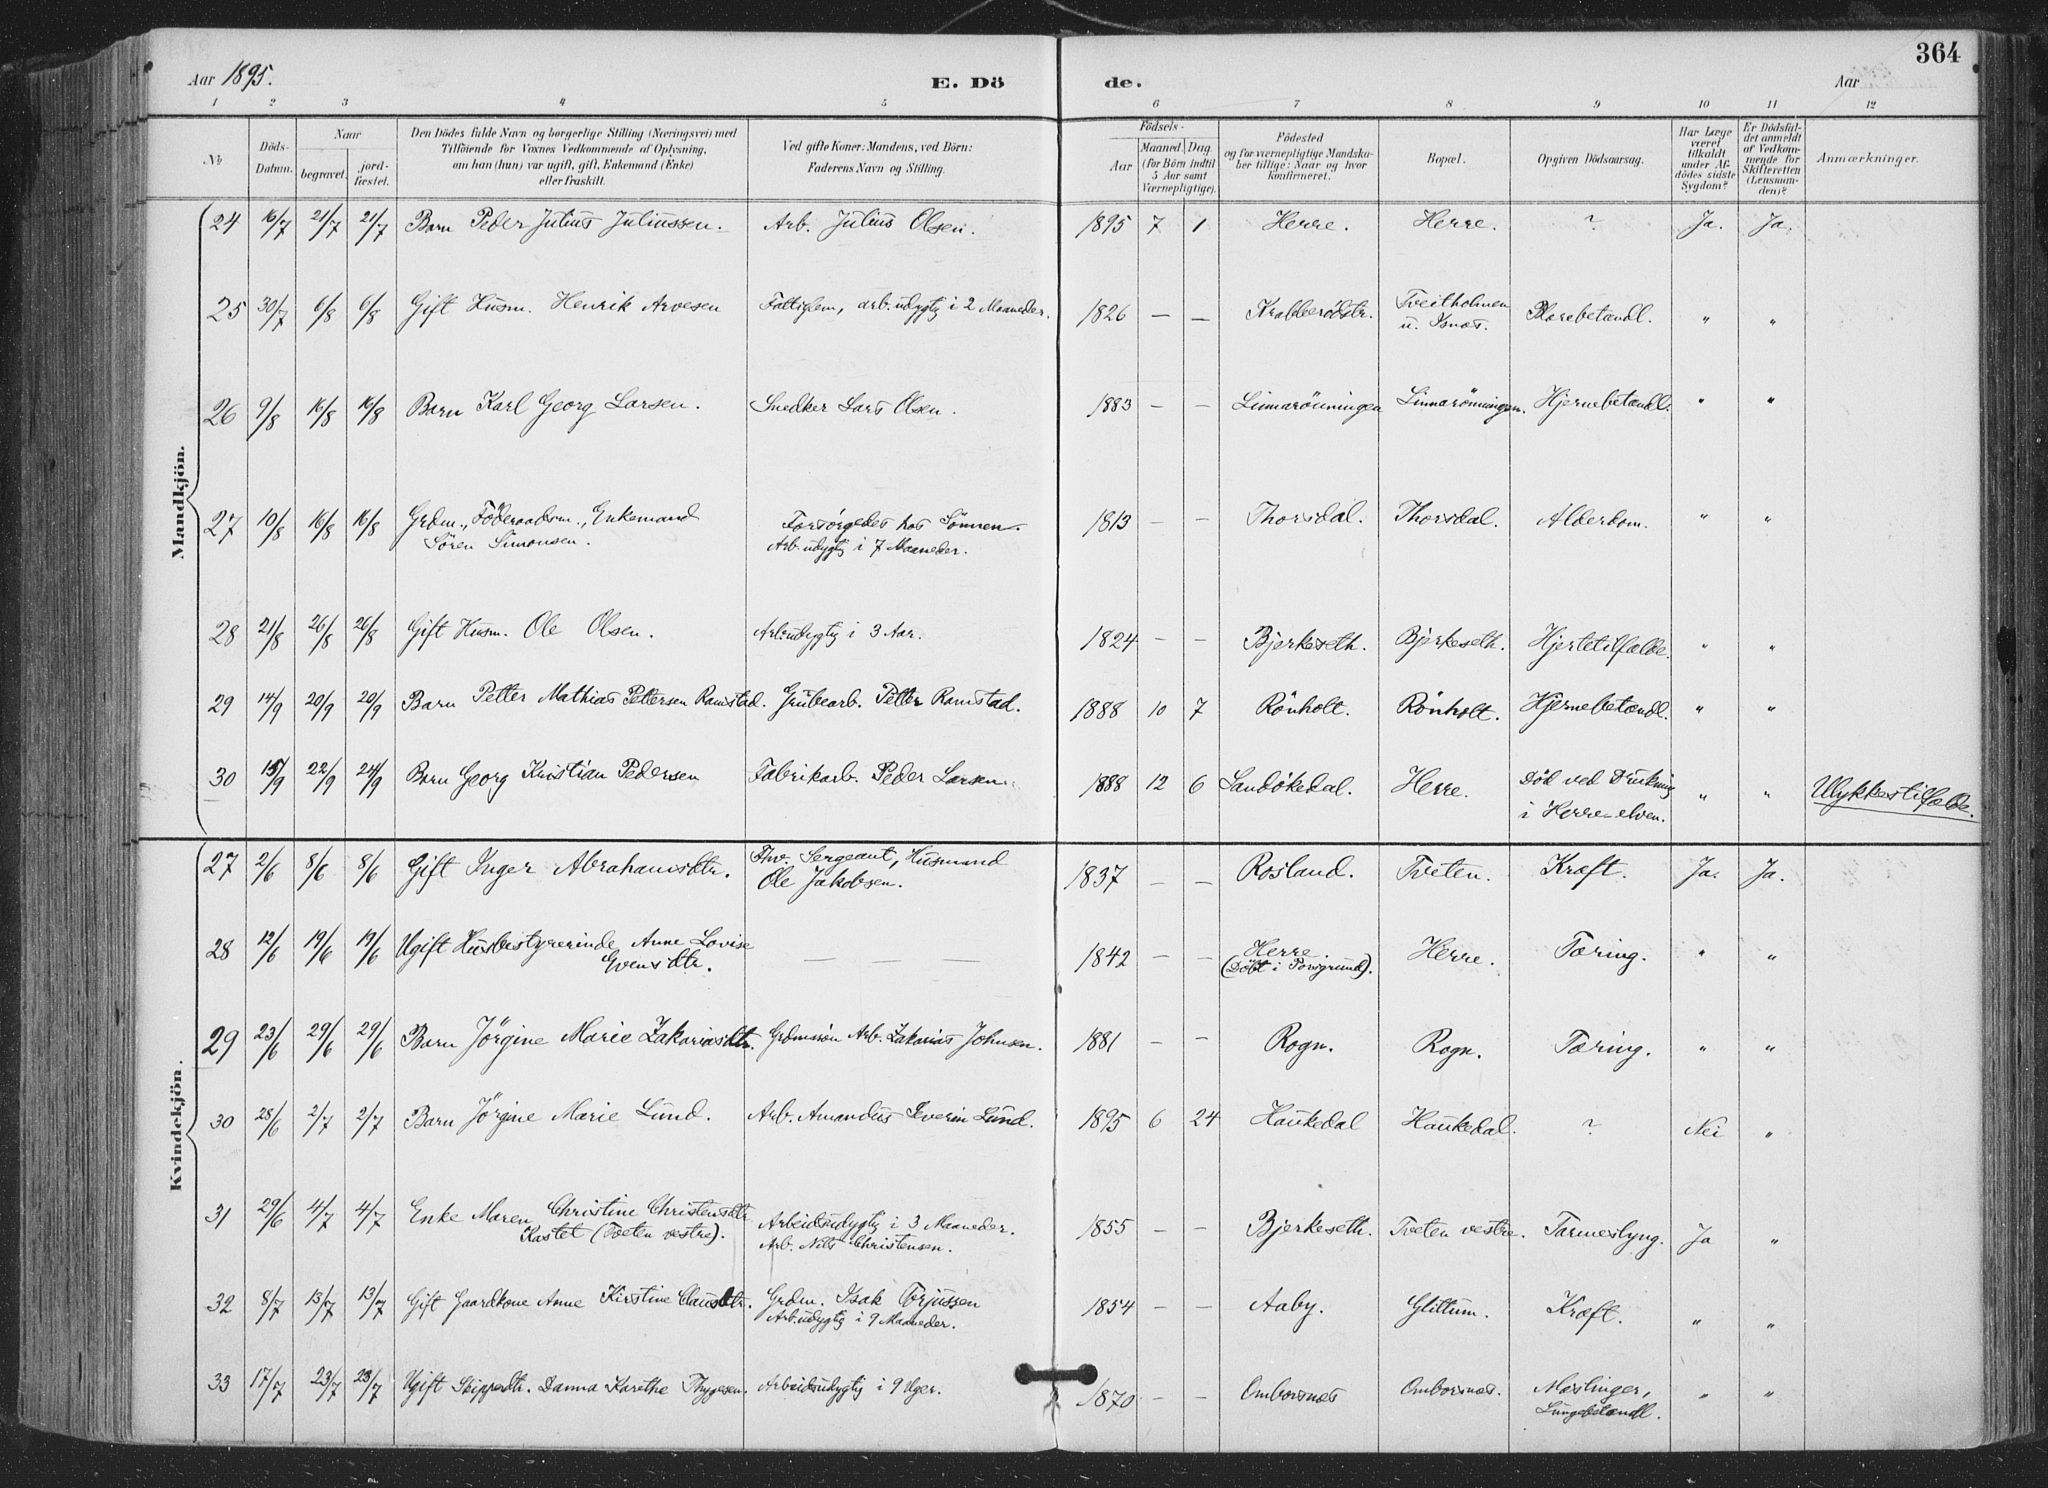 364
Aar 1895. E. Dö de. Aar
1 2 3 4 5 6 7 8 9 10 11 12
№ Döds-Datum. Naar begravet. jord-fæstet. Den Dödes fulde Navn og borgerlige Stilling (Næringsvei) med Tilföiende for Voxnes Vedkommende af Oplysning, om han (hun) var ugift, gift, Enkemand (Enke) eller fraskilt. Ved gifte Koner: Mandens, ved Börn: Faderens Navn og Stilling. Födsels- Aar Maaned. Dag. (for Börn indtil 5 Aar samt Værnepligtige). Födested og for værnepligtige Mandskaber tillige: Naar og hvor konfirmeret. Bopæl. Opgiven Dödsaarsag. Har Læge været tilkaldt under Afdödes sidste Sygdom? Er Dödsfaldet anmeldt af Vedkommende for Skifteretten (Lensmanden)? Anmærkninger.
Mandkjön.
24 16/7 21/7 21/7 Barn Peder Julius Juliussen. Arb. Julius Olsen. 1895 7 1 Herre. Herre. ? Ja. Ja.
25 30/7 6/8 6/8 Gift Husm. Henrik Arvesen Fattiglem, arb.udygtig i 2 Maaneder. 1826 — — Krabberødstr. Tveitholmen
u. Isnæs. Blærebetændl. " "
26 9/8 16/8 16/8 Barn Karl Georg Larsen. Snedker Lars Olsen. 1883 — — Linnarönningen Linnarönningen. Hjernebetændl. " "
27 10/8 16/8 16/8 Grdm., Föderaadsm., Enkemand Forsörgedes hos Sönnen. 1813 — — Thorsdal. Thorsdal. Alderdom. " "
Sören Simonsen. Arb.udygtig i 7 Maaneder.
28 21/8 26/8 26/8 Gift Husm. Ole Olsen. Arb.udygtig i 3 Aar. 1824 — — Bjerkeseth. Bjerkeseth. Hjertetilfælde. " "
29 14/9 20/9 20/9 Barn Petter Mathias Pettersen Ramstad. Grubearb. Petter Ramstad. 1888 10 7 Rönholt. Rönholt. Hjernebetændl. " "
30 15/9 22/9 24/9 Barn Georg Kristian Pedersen Fabrikarb. Peder Larsen. 1888 12 6 Sandökedal. Herre. Död ved Drukning
i Herre-elven. " " Ulykkestilfælde.
Kvindekjön.
27 2/6 8/6 8/6 Gift Inger Abrahamsdtr. Fhv. Sergeant, Husmand
Ole Jakobsen. 1837 — — Rosland. Tveten. Kræft. Ja. Ja.
28 12/6 19/6 19/6 Ugift Husbestyrerinde Anne Lovise
Evensdtr. — — — 1842 — — Herre.
(Döbt i Porsgrund). Herre. Tæring. " "
29 23/6 29/6 29/6 Barn Jörgine Marie Zakariasdtr. Grdmssön Arb. Zakarias Johnsen. 1881 — — Rogn. Rogn. Tæring. " "
30 28/6 2/7 2/7 Barn Jörgine Marie Lund. Arb. Amandus Severin Lund. 1895 6 24 Haukedal Haukedal. ? Nei "
31 29/6 4/7 4/7 Enke Maren Christine Christensdtr
Kastet (Tveten vestre). Arbeidsudygtig i 3 Maaneder.
Arb. Nils Christensen. 1855 — — Bjerkeseth. Tveten vestre. Tarmeslyng. Ja "
32 8/7 13/7 13/7 Gift Gaardkone Anne Kirstine Clausdtr. Grdm. Isak Torjussen
Arb.udygtig i 9 Maaneder. 1854 — — Aaby. Glittum. Kræft. " "
33 17/7 23/7 23/7 Ugift Skipperdtr. Danna Karethe Thygesen. Arbeidsudygtig i 9 Uger. 1870 — — Omborsnæs Omborsnæs. Mæslinger,
Lungebetændl. " "